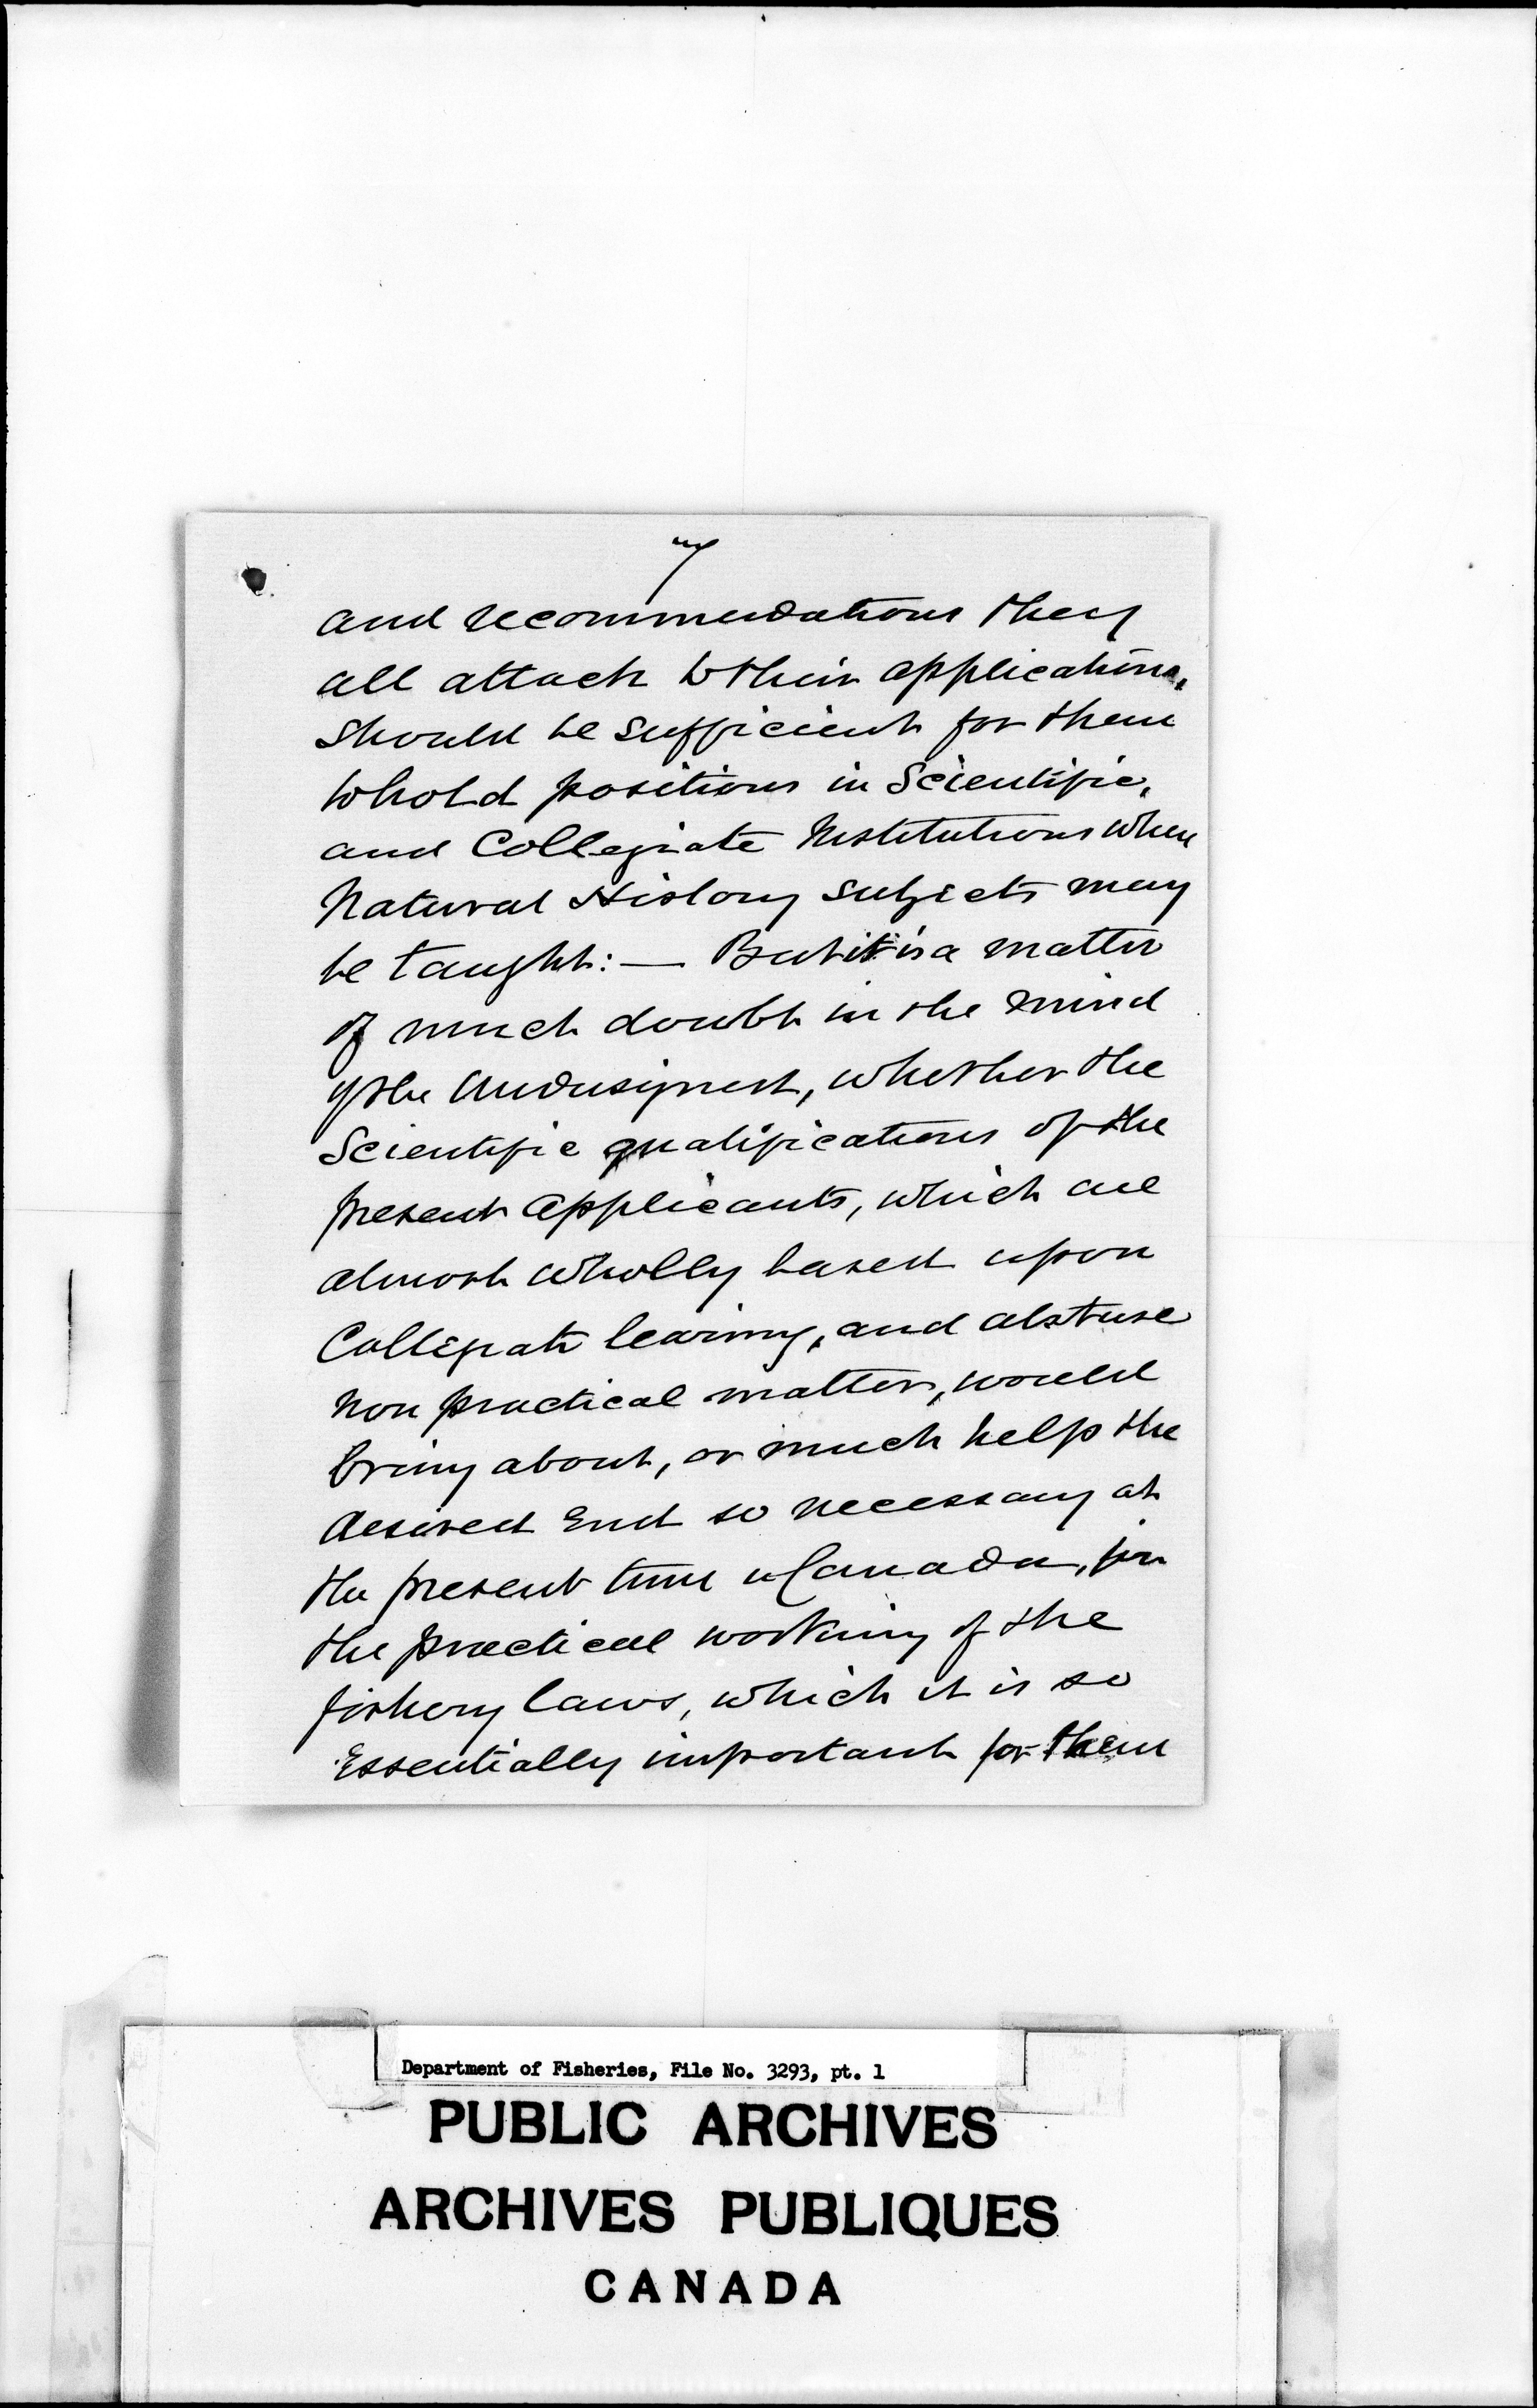 7
and recommendations they
all attach to their applications,
should be sufficient for them
to hold positions in Scientific,
and Collegiate Institutions where
Natural History subjects may
be taught: — But it is a matter
of much doubt in the mind
of the Undersigned, whether the
Scientific qualifications of the
present applicants, which are
almost wholly based upon
Collegiate learning, and abstruse
non practical matters, would
bring about, or much help the
desired End so necessary at
the present time in Canada, for
the practical working of the
fishery laws, which it is so
Essentially important for them
Department of Fisheries, File No. 3293, pt. 1
PUBLIC ARCHIVES
ARCHIVES PUBLIQUES
CANADA